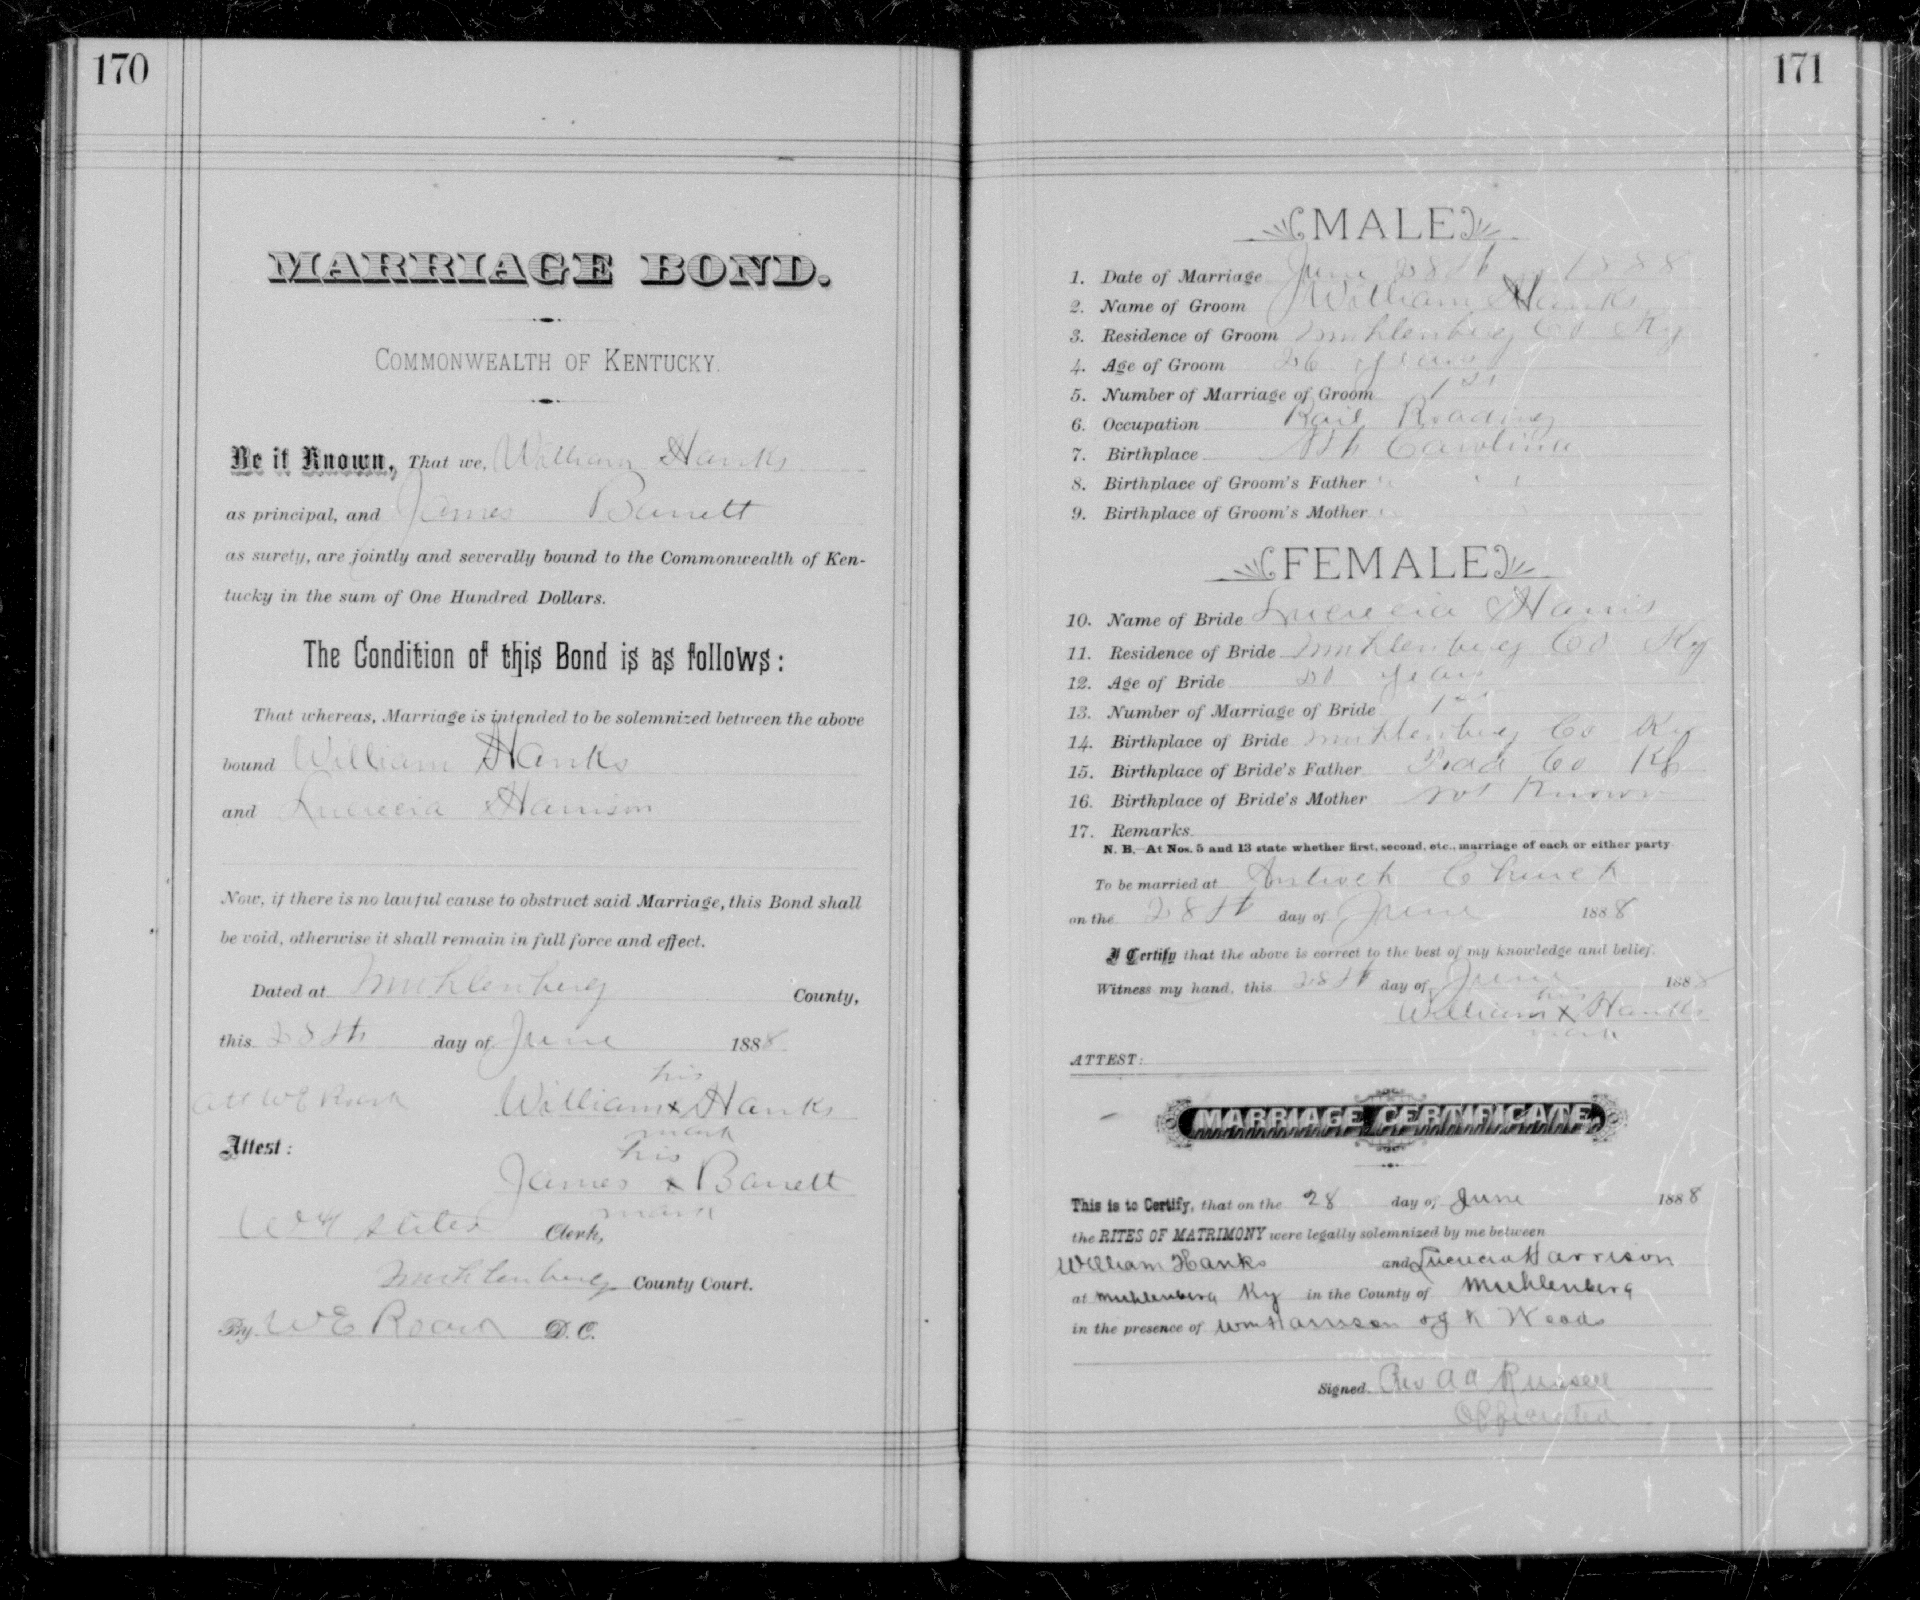 170
MARRIAGE BOND.
COMMONWEALTH OF KENTUCKY.
Be it Known, That we, William Hanks
as principal, and James Barrett
as surety, are jointly and severally bound to the Commonwealth of Ken-
tucky in the sum of One Hundred Dollars.
The Condition of this Bond is as follows:
That whereas, Marriage is intended to be solemnized between the above
bound William Hanks
and Lucrecia Harrison
Now, if there is no lawful cause to obstruct said Marriage, this Bond shall
be void, otherwise it shall remain in full force and effect.
Dated at Muhlenberg County,
this 28th day of June 1888
his
Att W E Roark William x Hanks
mark
Attest:
his
James x Barrett
mark
Clerk,
Muhlenberg County Court.
By W E Roark D. C.
171
MALE
1. Date of Marriage June 28th 1888
2. Name of Groom William Hanks
3. Residence of Groom Muhlenberg Co Ky
4. Age of Groom 26 years
5. Number of Marriage of Groom 1st
6. Occupation Rail Roading
7. Birthplace Nth Carolina
8. Birthplace of Groom's Father " " "
9. Birthplace of Groom's Mother "
FEMALE
10. Name of Bride Lucrecia Harris
11. Residence of Bride Muhlenberg Co Ky
12. Age of Bride years
13. Number of Marriage of Bride 1st
14. Birthplace of Bride Muhlenberg Co Ky
15. Birthplace of Bride's Father Todd Co Ky
16. Birthplace of Bride's Mother not Known
17. Remarks
N. B.—At Nos. 5 and 13 state whether first, second, etc., marriage of each or either party
To be married at Antioch Church
on the 28th day of June 1888
I Certify that the above is correct to the best of my knowledge and belief.
Witness my hand, this 28th day of June 1888
his
William x Hanks
mark
ATTEST:
MARRIAGE CERTIFICATE
This is to Certify, that on the 28 day of June 1888
the RITES OF MATRIMONY were legally solemnized by me between
William Hanks and Lucrecia Harrison
at Muhlenberg Ky in the County of Muhlenberg
in the presence of Wm Harrison K Woods
Signed Rev A A Russell
Officiated